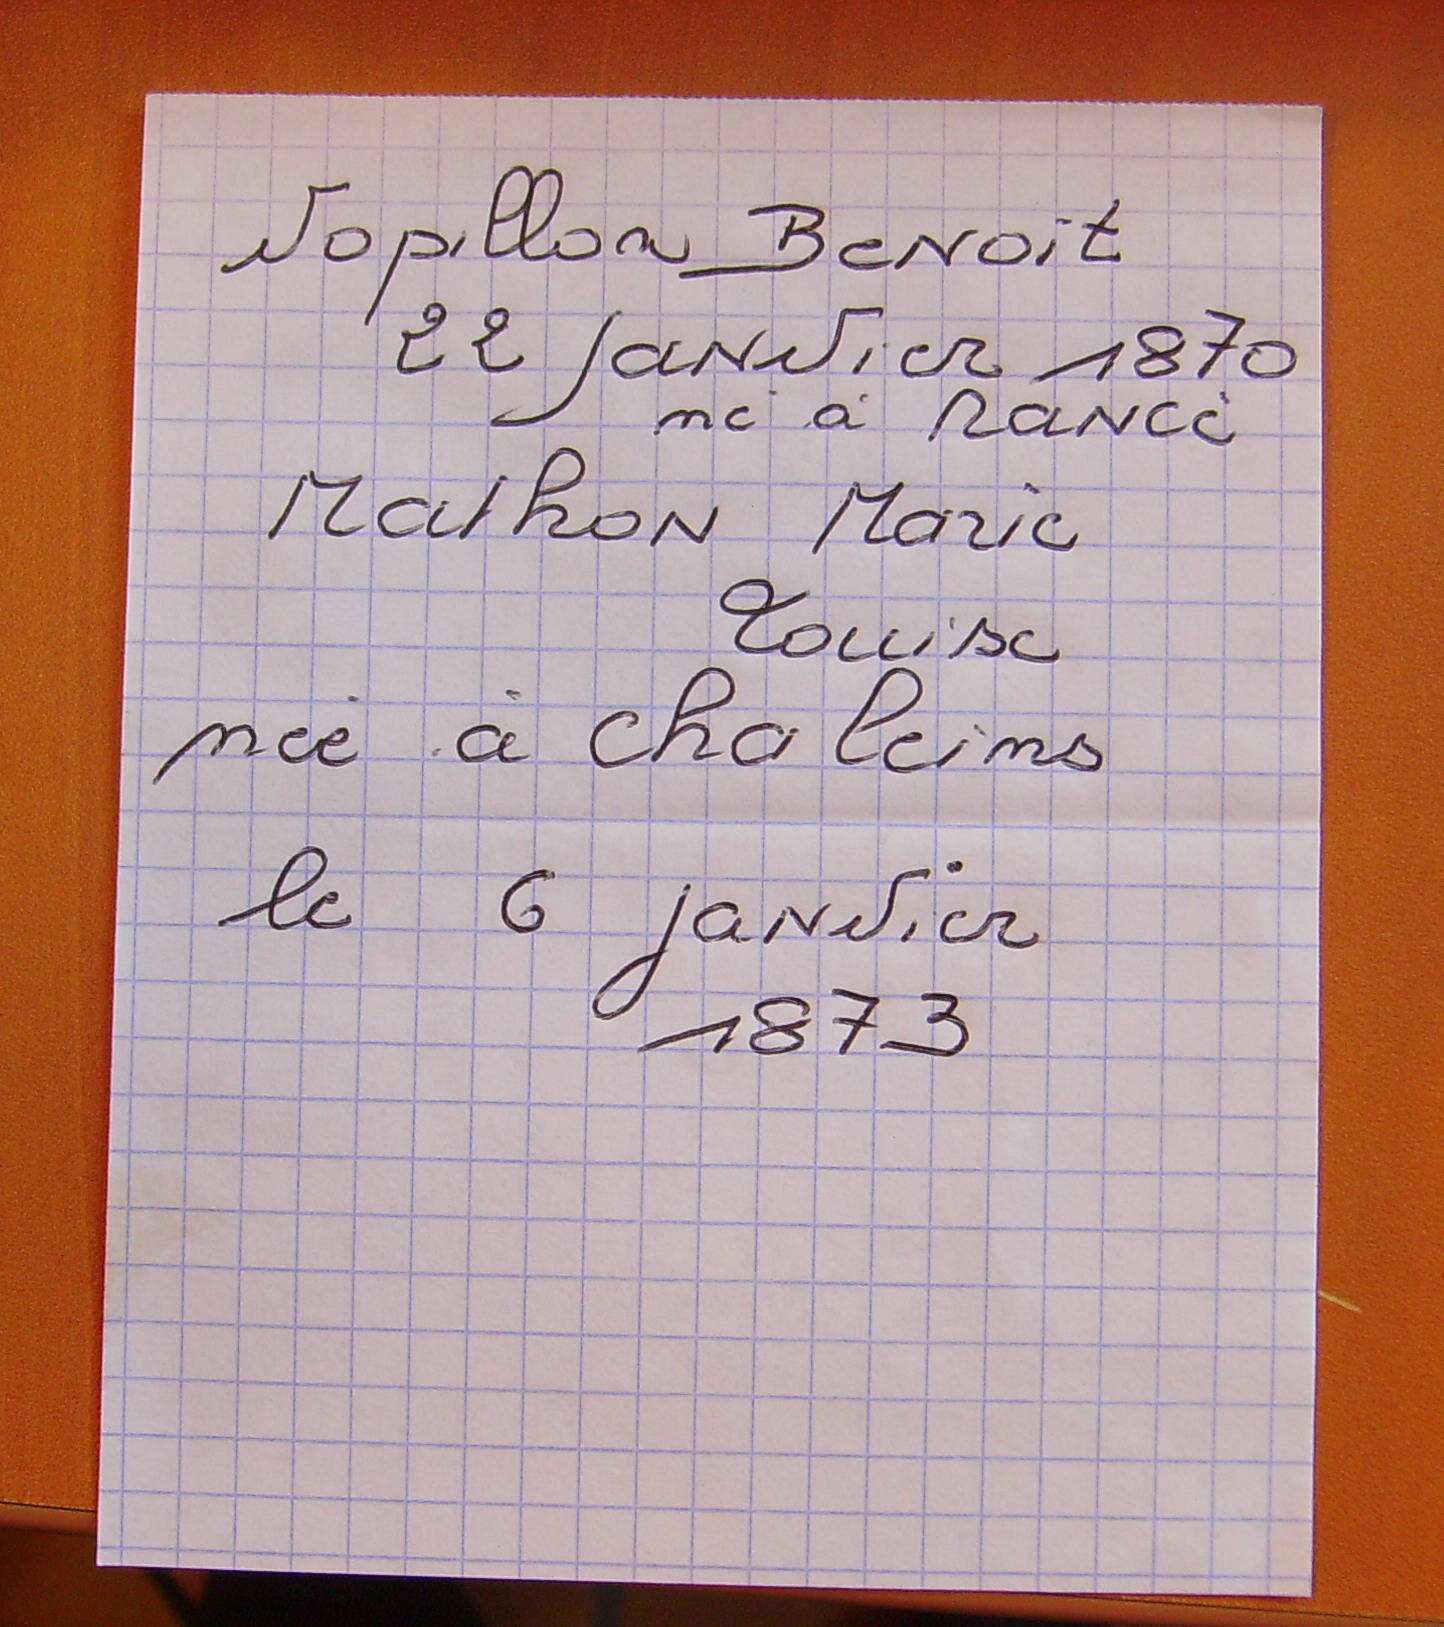 Vopillon Benoit
22 janvier 1870
né à Rancé
Mathon Marie
Louise
née à chaleins
le 6 janvier
1873